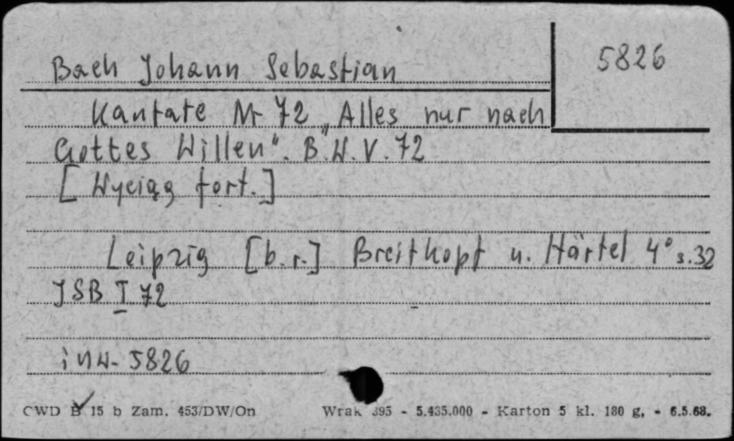 5826
Bach Johann Sebastian
Kantate Nr 72 „Alles nur nach
Gottes Willen". B.W.V. 72
[Wyciąg fort.]
Leipzig [b.r.] Breitkopf u. Härtel 4° s. 32
JSB I 72
inw. 5826
CWD B 15 b Zam. 453/DW/On Wrak 395 - 5.435.000 - Karton 5 kl. 180 g. - 6.5.68.